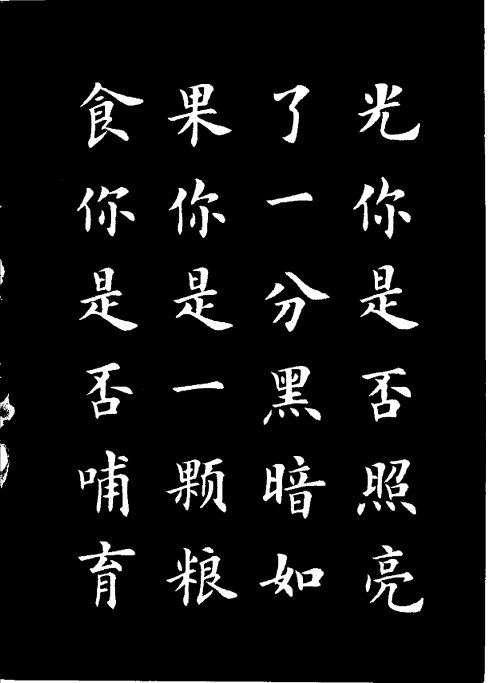 光你是否照亮
了一分黑暗如
果你是一颗粮
食你是否哺育